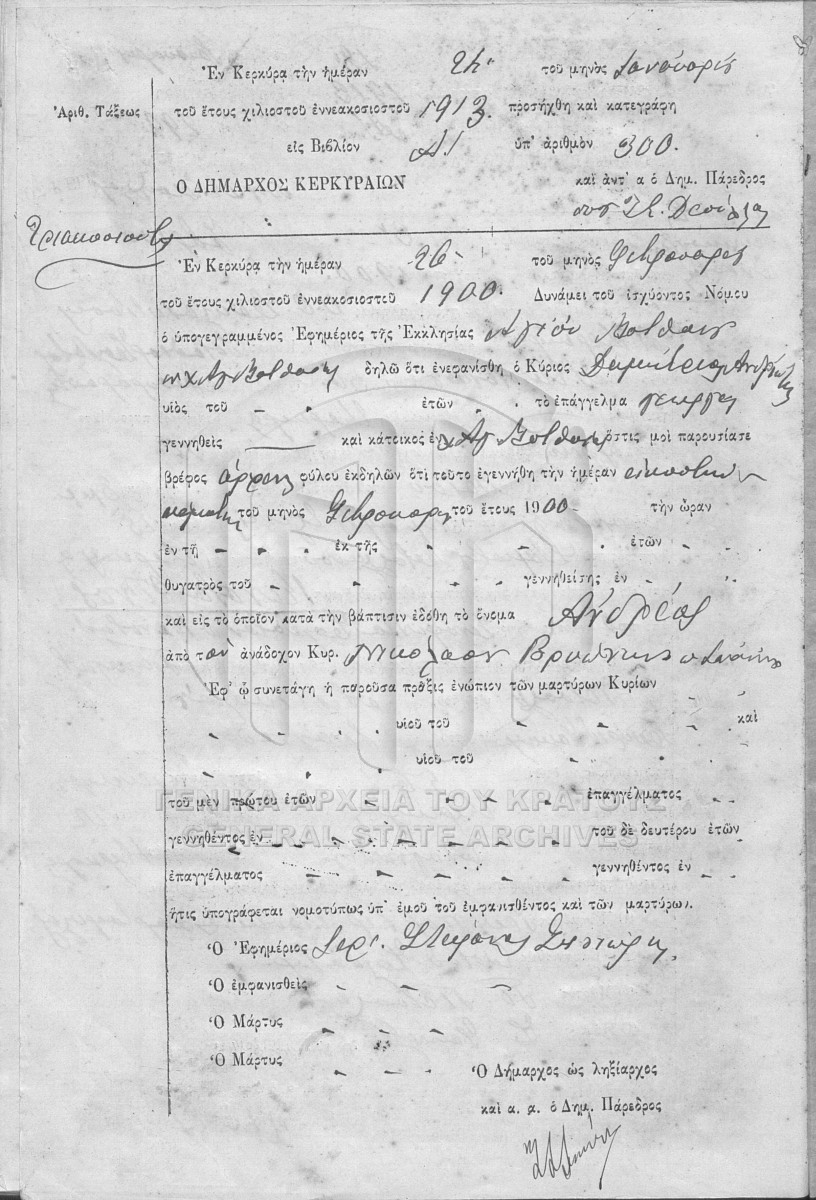 Ἐν Κερκύρᾳ τὴν ἡμέραν 24 τοῦ μηνὸς Ἰανουαρίου
Ἀριθ. Τάξεως
τοῦ ἔτους χιλιοστοῦ ἐννεακοσιοστοῦ 1913. προσήχθη καὶ κατεγράφη
εἰς Βιβλίον Α! ὑπ' ἀριθμὸν 300.
Ο ΔΗΜΑΡΧΟΣ ΚΕΡΚΥΡΑΙΩΝ καὶ ἀντ' α ὁ Δημ. Πάρεδρος
Τριακοσιοστή
Ἐν Κερκύρᾳ τὴν ἡμέραν 26 τοῦ μηνὸς Φεβρουαρίου
τοῦ ἔτους χιλιοστοῦ ἐννεακοσιοστοῦ 1900. Δυνάμει τοῦ ἰσχύοντος Νόμου
ὁ ὑπογεγραμμένος Ἐφημέριος τῆς Ἐκκλησίας Ἁγίου
δηλῶ ὅτι ἐνεφανίσθη ὁ Κύριος Δημήτριος
υἱὸς τοῦ - - ἐτῶν - - τὸ ἐπάγγελμα γεωργὸς
γεννηθεὶς — καὶ κάτοικος ἐν ὅστις μοὶ παρουσίασε
βρέφος ἄρρεν φύλου ἐκδηλῶν ὅτι τοῦτο ἐγεννήθη τὴν ἡμέραν εἰκοστὴν
πέμπτην τοῦ μηνὸς Φεβρουαρίου τοῦ ἔτους 1900 τὴν ὥραν
ἐν τῇ - - - ἐκ τῆς - - - - ἐτῶν - -
θυγατρὸς τοῦ - - - - - γεννηθείσης ἐν - -
καὶ εἰς τὸ ὁποῖον κατὰ τὴν βάπτισιν ἐδόθη τὸ ὄνομα Ἀνδρέας
ἀπὸ τὸν ἀνάδοχον Κυρ. Νικόλαον
Ἐφ' ᾧ συνετάγη ἡ παροῦσα πρᾶξις ἐνώπιον τῶν μαρτύρων Κυρίων - -
- - - - - υἱοῦ τοῦ - - - - καὶ
- - - - - υἱοῦ τοῦ - - - -
ΓΕΝΙΚΑ ΑΡΧΕΙΑ ΤΟΥ ΚΡΑΤΟΥΣ
τοῦ μὲν πρώτου ἐτῶν - - - - ἐπαγγέλματος - -
GENERAL STATE ARCHIVES
γεννηθέντος ἐν - - - - - τοῦ δὲ δευτέρου ἐτῶν
ἐπαγγέλματος - - - - - γεννηθέντος ἐν - -
ἥτις ὑπογράφεται νομοτύπως ὑπ' ἐμοῦ τοῦ ἐμφανισθέντος καὶ τῶν μαρτύρων.
Ὁ Ἐφημέριος Ἱερ.
Ὁ ἐμφανισθεὶς - - -
Ὁ Μάρτυς - - - -
Ὁ Μάρτυς - - - -
Ὁ Δήμαρχος ὡς ληξίαρχος
καὶ α. α. ὁ Δημ. Πάρεδρος